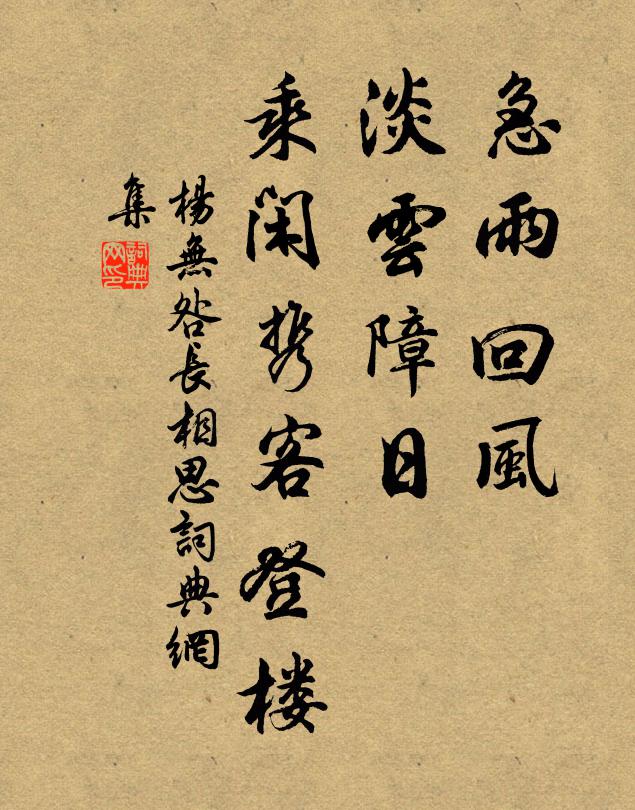 急雨回風
淡雲障日
乘閑携客登楼
楊無咎長相思詞典網
集
詞典網印